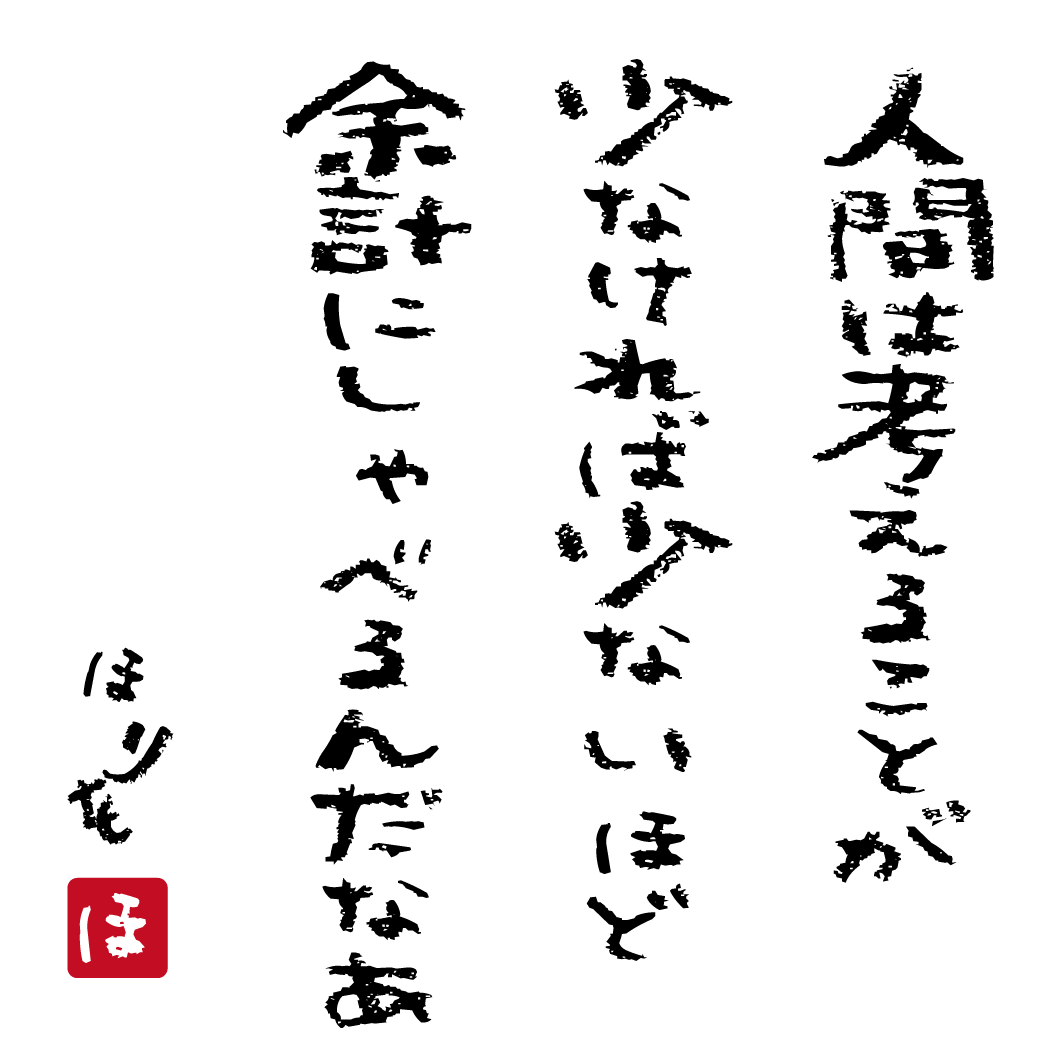 人間は考えることが
少なければ少ないほど
余計にしゃべるんだなあ
ほりを
ほ